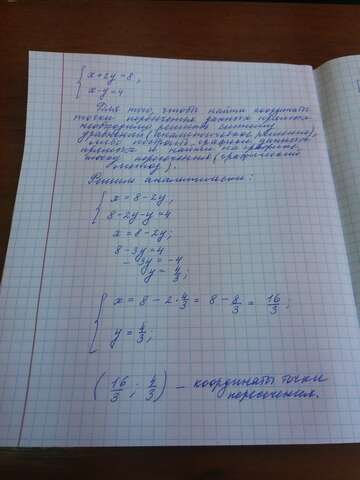 { x+2y=8,
{ x-y=4
Для того, чтобы найти координаты
точки пересечения данных прямых
необходимо решить систему
уравнений (аналитическое решение),
либо построить графики данных
прямых и найти на графике
точку пересечения (графический
метод).
Решим аналитически:
{ x = 8-2y,
{ 8-2y-y=4
x = 8-2y;
8-3y=4
-3y = -4
y = 4/3;
{ x = 8 - 2·4/3 = 8 - 8/3 = 16/3;
{ y = 4/3;
(16/3; 4/3) - координаты точки
пересечения.